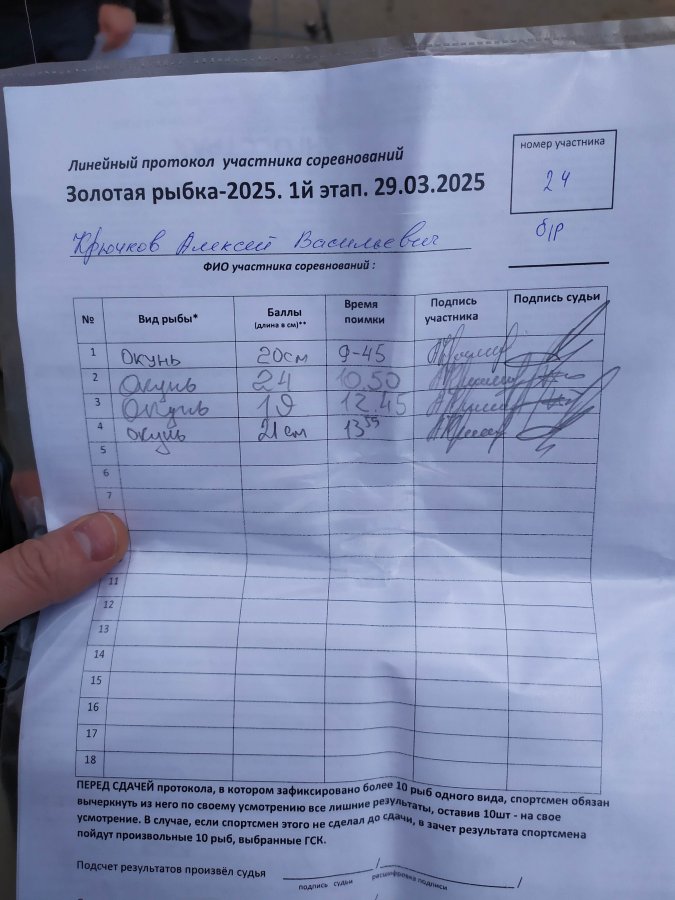 Линейный протокол участника соревнований
Золотая рыбка-2025. 1й этап. 29.03.2025
номер участника
24
б/р
Крючков Алексей Васильевич
ФИО участника соревнований :
№ Вид рыбы* Баллы (длина в см)** Время поимки Подпись участника Подпись судьи
1 Окунь 20см 9-45
2 Окунь 24 10.50
3 Окунь 19 12.45
4 окунь 21 см 13 55
5
6
7
11
12
13
14
15
16
17
18
ПЕРЕД СДАЧЕЙ протокола, в котором зафиксировано более 10 рыб одного вида, спортсмен обязан
вычеркнуть из него по своему усмотрению все лишние результаты, оставив 10шт - на свое
усмотрение. В случае, если спортсмен этого не сделал до сдачи, в зачет результата спортсмена
пойдут произвольные 10 рыб, выбранные ГСК.
Подсчет результатов произвёл судья / /
подпись судьи расшифровка подписи